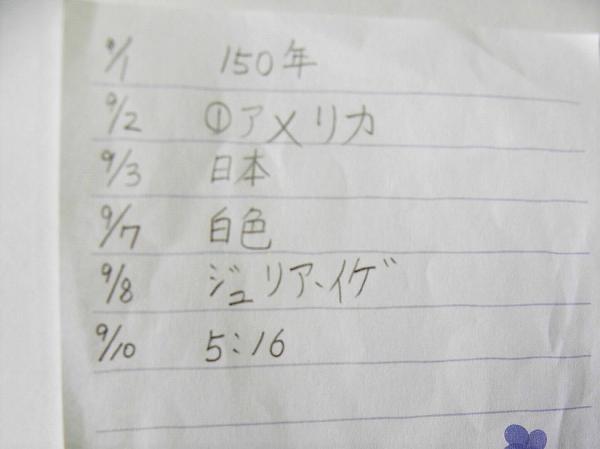 9/1 150年
9/2 ①アメリカ
9/3 日本
9/7 白色
9/8 ジュリア、イゲ
9/10 5:16